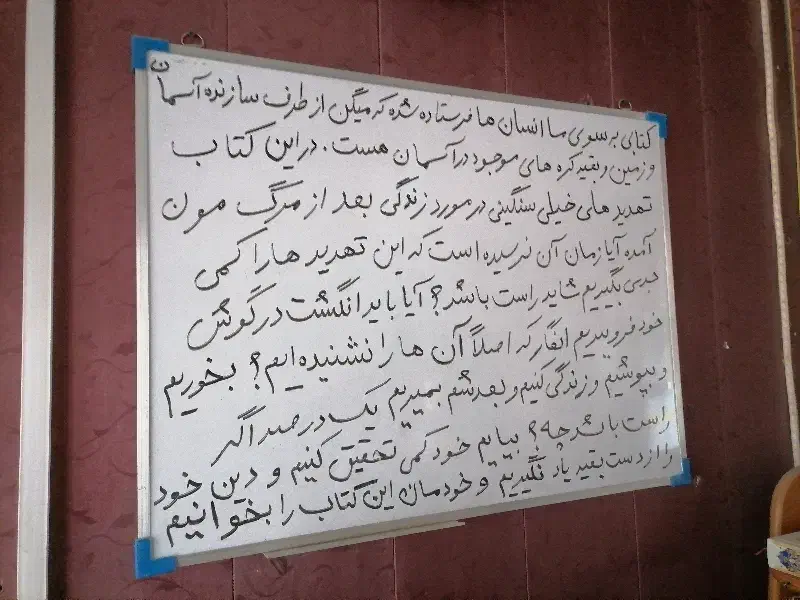 کتابی بر سوی ما انسان ها فرستاده شده که میگن از طرف سازنده آسمان
و زمین و بقیه کره های موجود در آسمان هست. در این کتاب
تهدید های خیلی سنگینی در مورد زندگی بعد از مرگ مون
آمده آیا زمان آن نرسیده است که این تهدید ها را کمی
جدی بگیریم شاید راست باشد؟ آیا باید انگشت در گوش
خود فرو ببریم انگار که اصلاً آن ها را نشنیده ایم؟ بخوریم
و بپوشیم و زندگی کنیم و بعدشم بمیریم یک درصد اگر
راست باشد چه؟ بیایم خود کمی تحقیق کنیم و دین خود
را از دست بقیه یاد نگیریم و خودمان این کتاب را بخوانیم